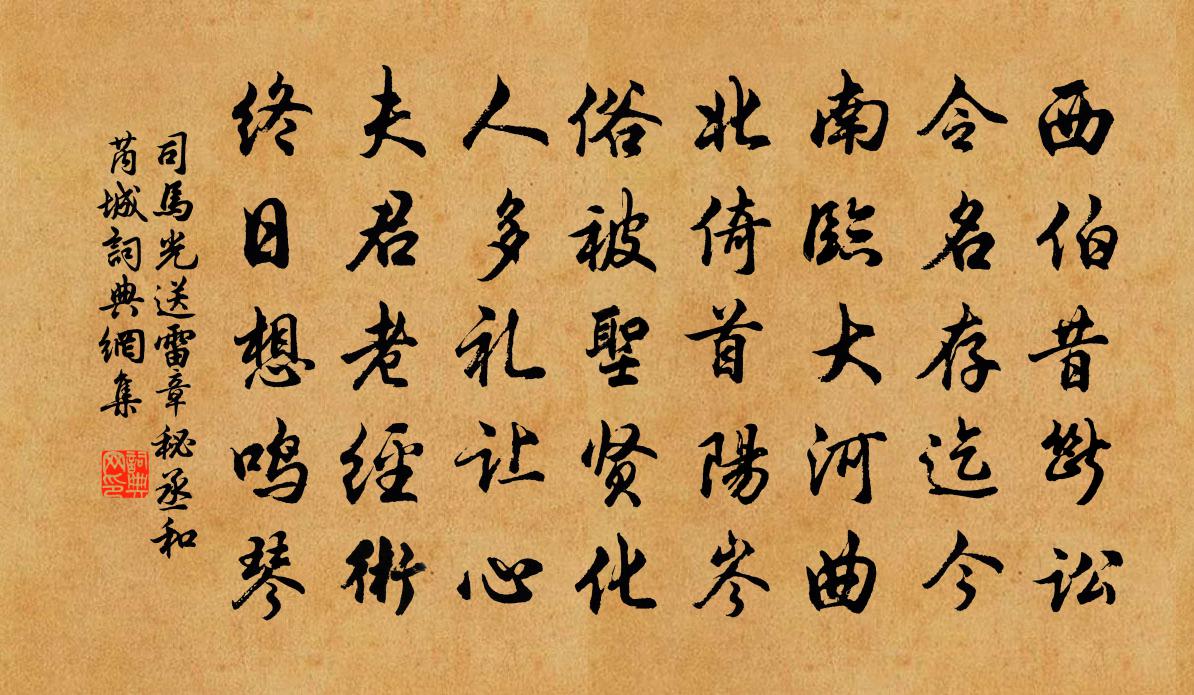 西伯昔斷訟
令名存迄今
南臨大河曲
北倚首陽岑
俗被聖贤化
人多礼让心
夫君老經術
终日想鸣琴
司馬光送雷章秘丞和
芮城詞典網集
詞典网印